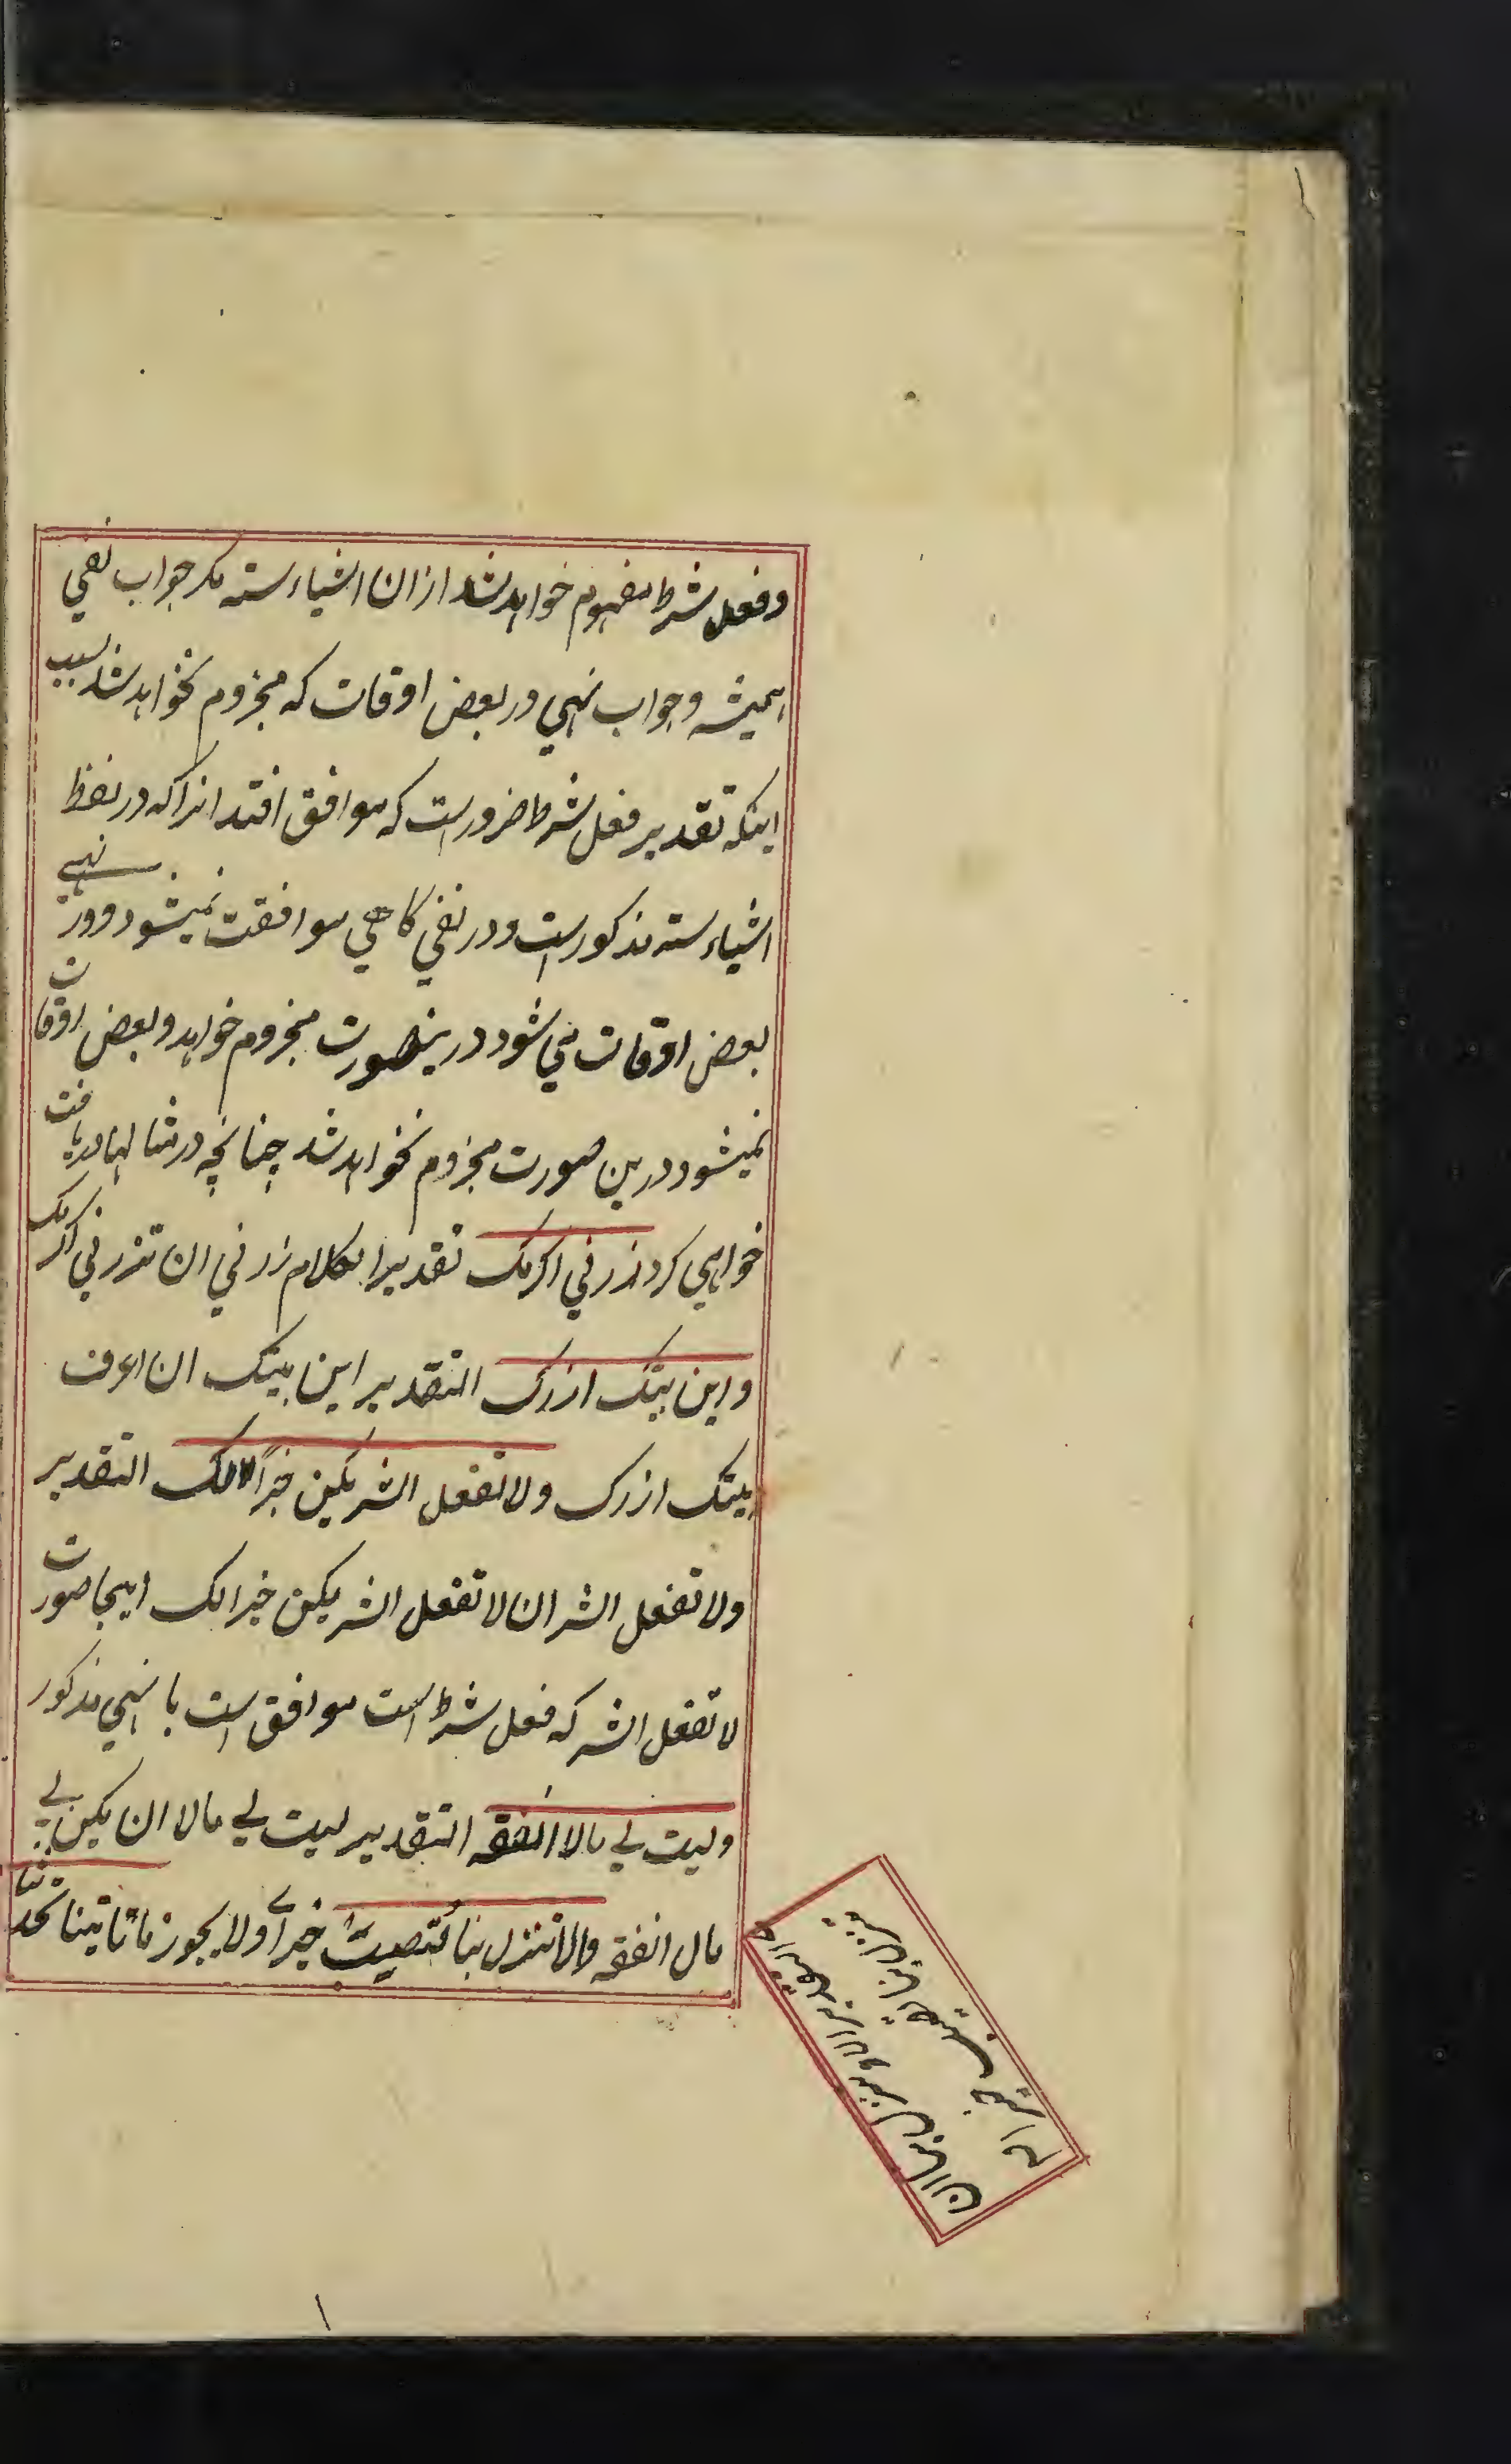 وفعل شرط مفهوم خواهد شد ازان اشیاء سته مکر جواب نفي
همیشه وجواب نهي در بعض اوقات که مجزوم نخواهد شد بسبب
اینکه تقدیر فعل شرط ضرورست که موافق افتد انرا که در لفظ
اشیاء سته مذکورست ودر نفي کاهي موافقت نمیشود ودر نهي
بعض اوقات مي شود درینصورت مجزوم خواهد وبعض اوقات
نمیشود درین صورت مجزوم نخواهد شد چنانچه در مثالها دریافت
خواهي کرد زرني اکرمک تقدیرا لکلام زرني ان تزرني اکرمک
واین بیتک ازرک التقدیر این بیتک ان اعرف
بیتک ازرک ولا تفعل الشر یکن خیرًا لک التقدیر
ولا تفعل الشر ان لا تفعل الشر یکن خیرا لک اینجا صورت
لا تفعل الشر که فعل شرط است موافق است با نهي مذکور
ولیت لي مالا انفقه التقدیر لیت لي مالا ان یکن لي
مال انفقه والا تنزل بنا تصیب خیرا ولا یجوز ما تاتینا تحدثنا